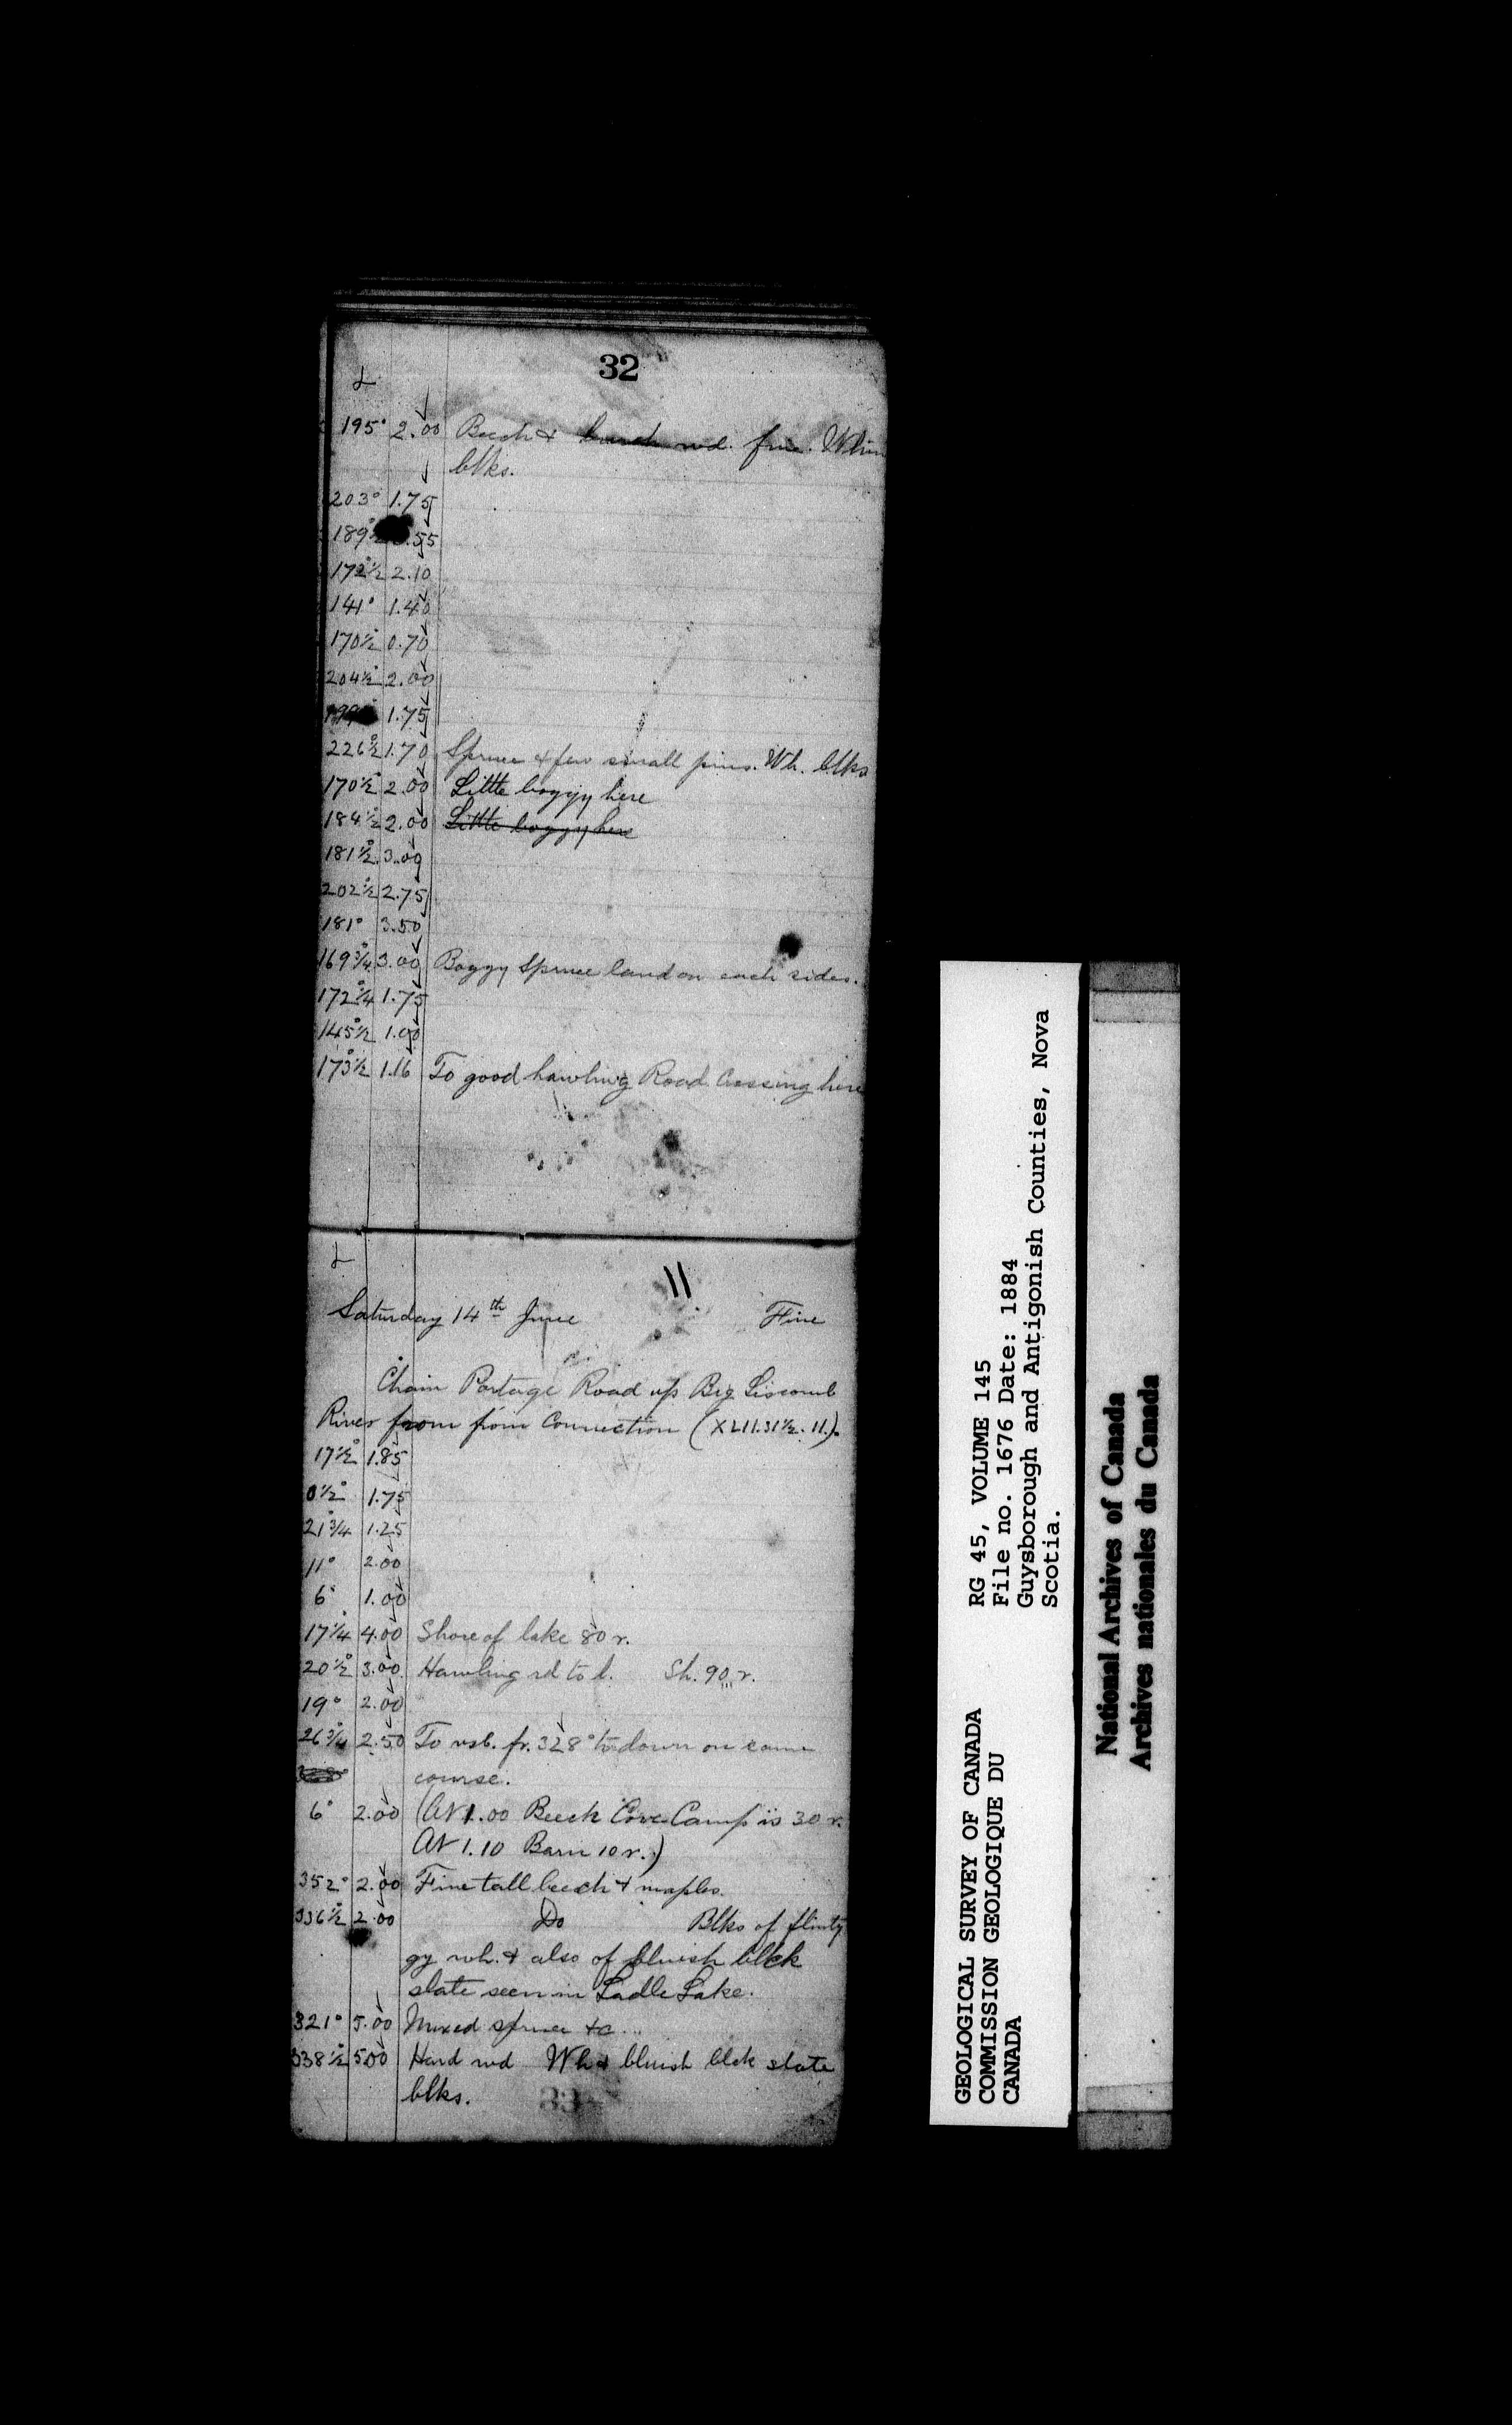 32
L
195° 2.00 Beech & birch wd. fine. Whin
blks.
203° 1.75
189½° .55
172½ 2.10
141° 1.40
170½° 0.70
204½° 2.00
1.75
226½° 1.70 Spruce & few small pines. Wh. blks
170½° 2.00 Little boggy here
184½° 2.00 Little boggy here
181½° 3.00
202½° 2.75
181° 3.50
169¾° 3.00 Boggy Spruce land on each sides.
172¼° 1.75
145½° 1.00
173½° 1.16 To good hawling Road Crossing here
L
11
Saturday 14th June Fine
Chain Portage Road up Big Liscomb
River from from Connection (XLII.31½.11).
17½° 1.85
0½° 1.75
21¾° 1.25
11° 2.00
6° 1.00
17¼° 4.00 Shore of lake 80 r.
20½° 3.00 Hawling rd to l. Sh. 90 r.
19° 2.00
26¾° 2.50 To rsb. fr. 328° to down on same
course.
6° 2.00 (At 1.00 Beech Cove Camp is 30 r.
At 1.10 Barn 10 r.)
352° 2.00 Fine tall beech & maples.
336½° 2.00 Do Blks of flinty
gy wh. & also of bluish blck
slate seen in Ladle Lake.
321° 5.00 Mixed spruce &c..
338½° 5.00 Hard wd Wh & bluish blck slate
blks.
33
GEOLOGICAL SURVEY OF CANADA
COMMISSION GEOLOGIQUE DU
CANADA
RG 45, VOLUME 145
File no. 1676 Date: 1884
Guysborough and Antigonish Counties, Nova
Scotia.
National Archives of Canada
Archives nationales du Canada